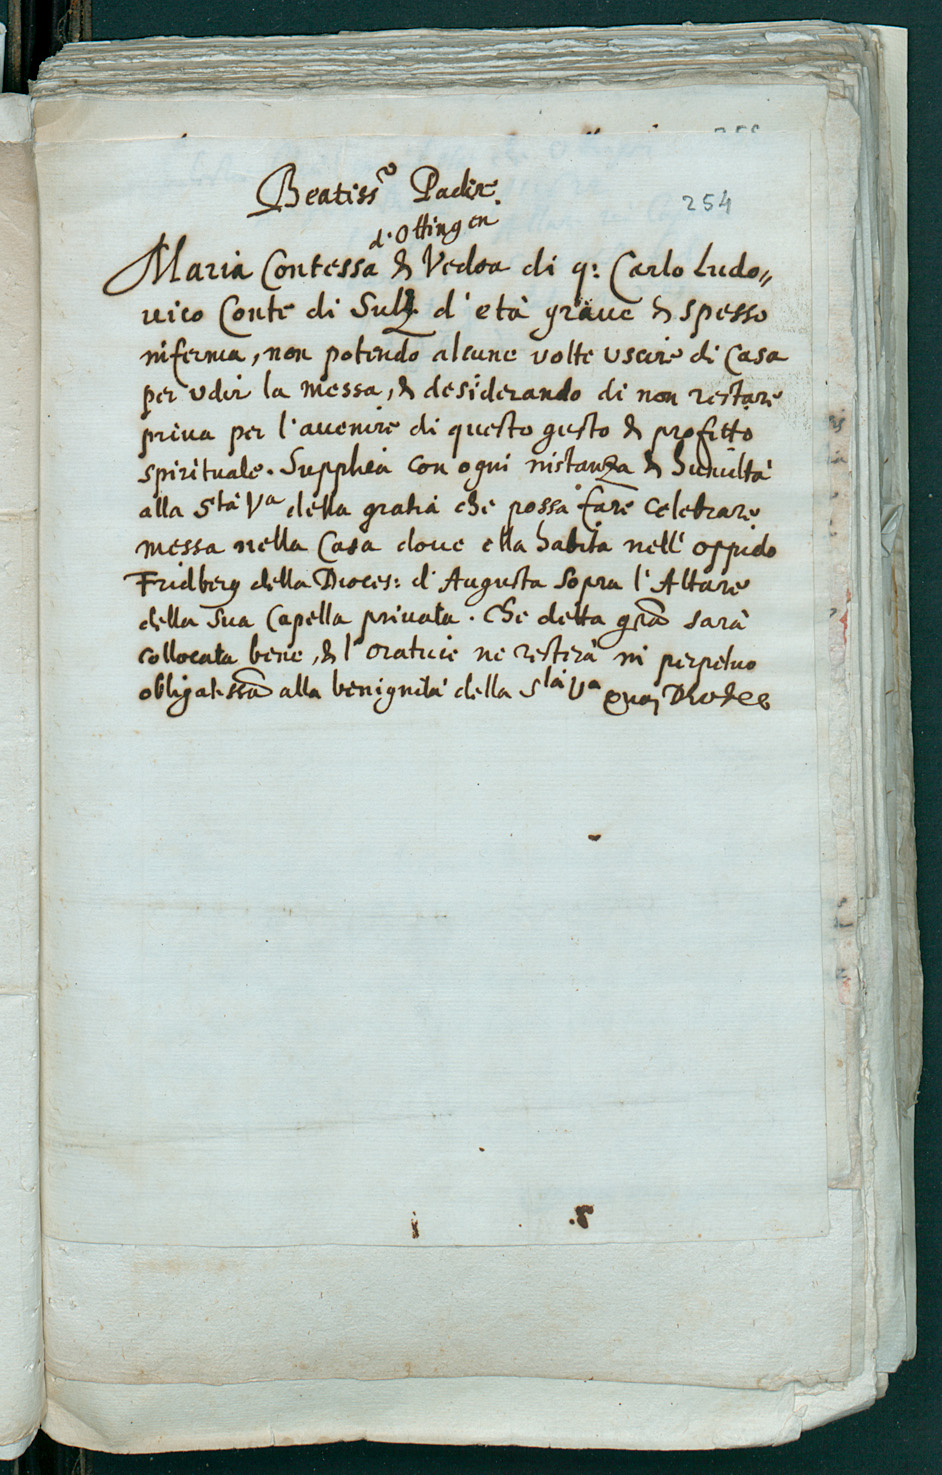 Beatiss.e Padre.
254
d'Ottingen
Maria Contessa & Vedoa di q: Carlo Ludo„
uico Conte di Sulz. d'età graue & spesso
inferma, non potendo alcune volte uscire di Casa
per udir la messa, & desiderando di non restare
priua per l'auenire di questo gusto & profitto
spirituale. Supplica con ogni instanza & humiltà
alla S.tà V.a della gratia che possa fare celebrare
messa nella Casa doue ella habita nell'oppido
Fridberg della Dioces: d'Augusta sopra l'Altare
della sua Capella priuata. Che detta gr̃a sarà
collocata bene, & l'oratrice ne resterà in perpetuo
obligatiss.a alla benignità della S.tà V.a Quam Deus